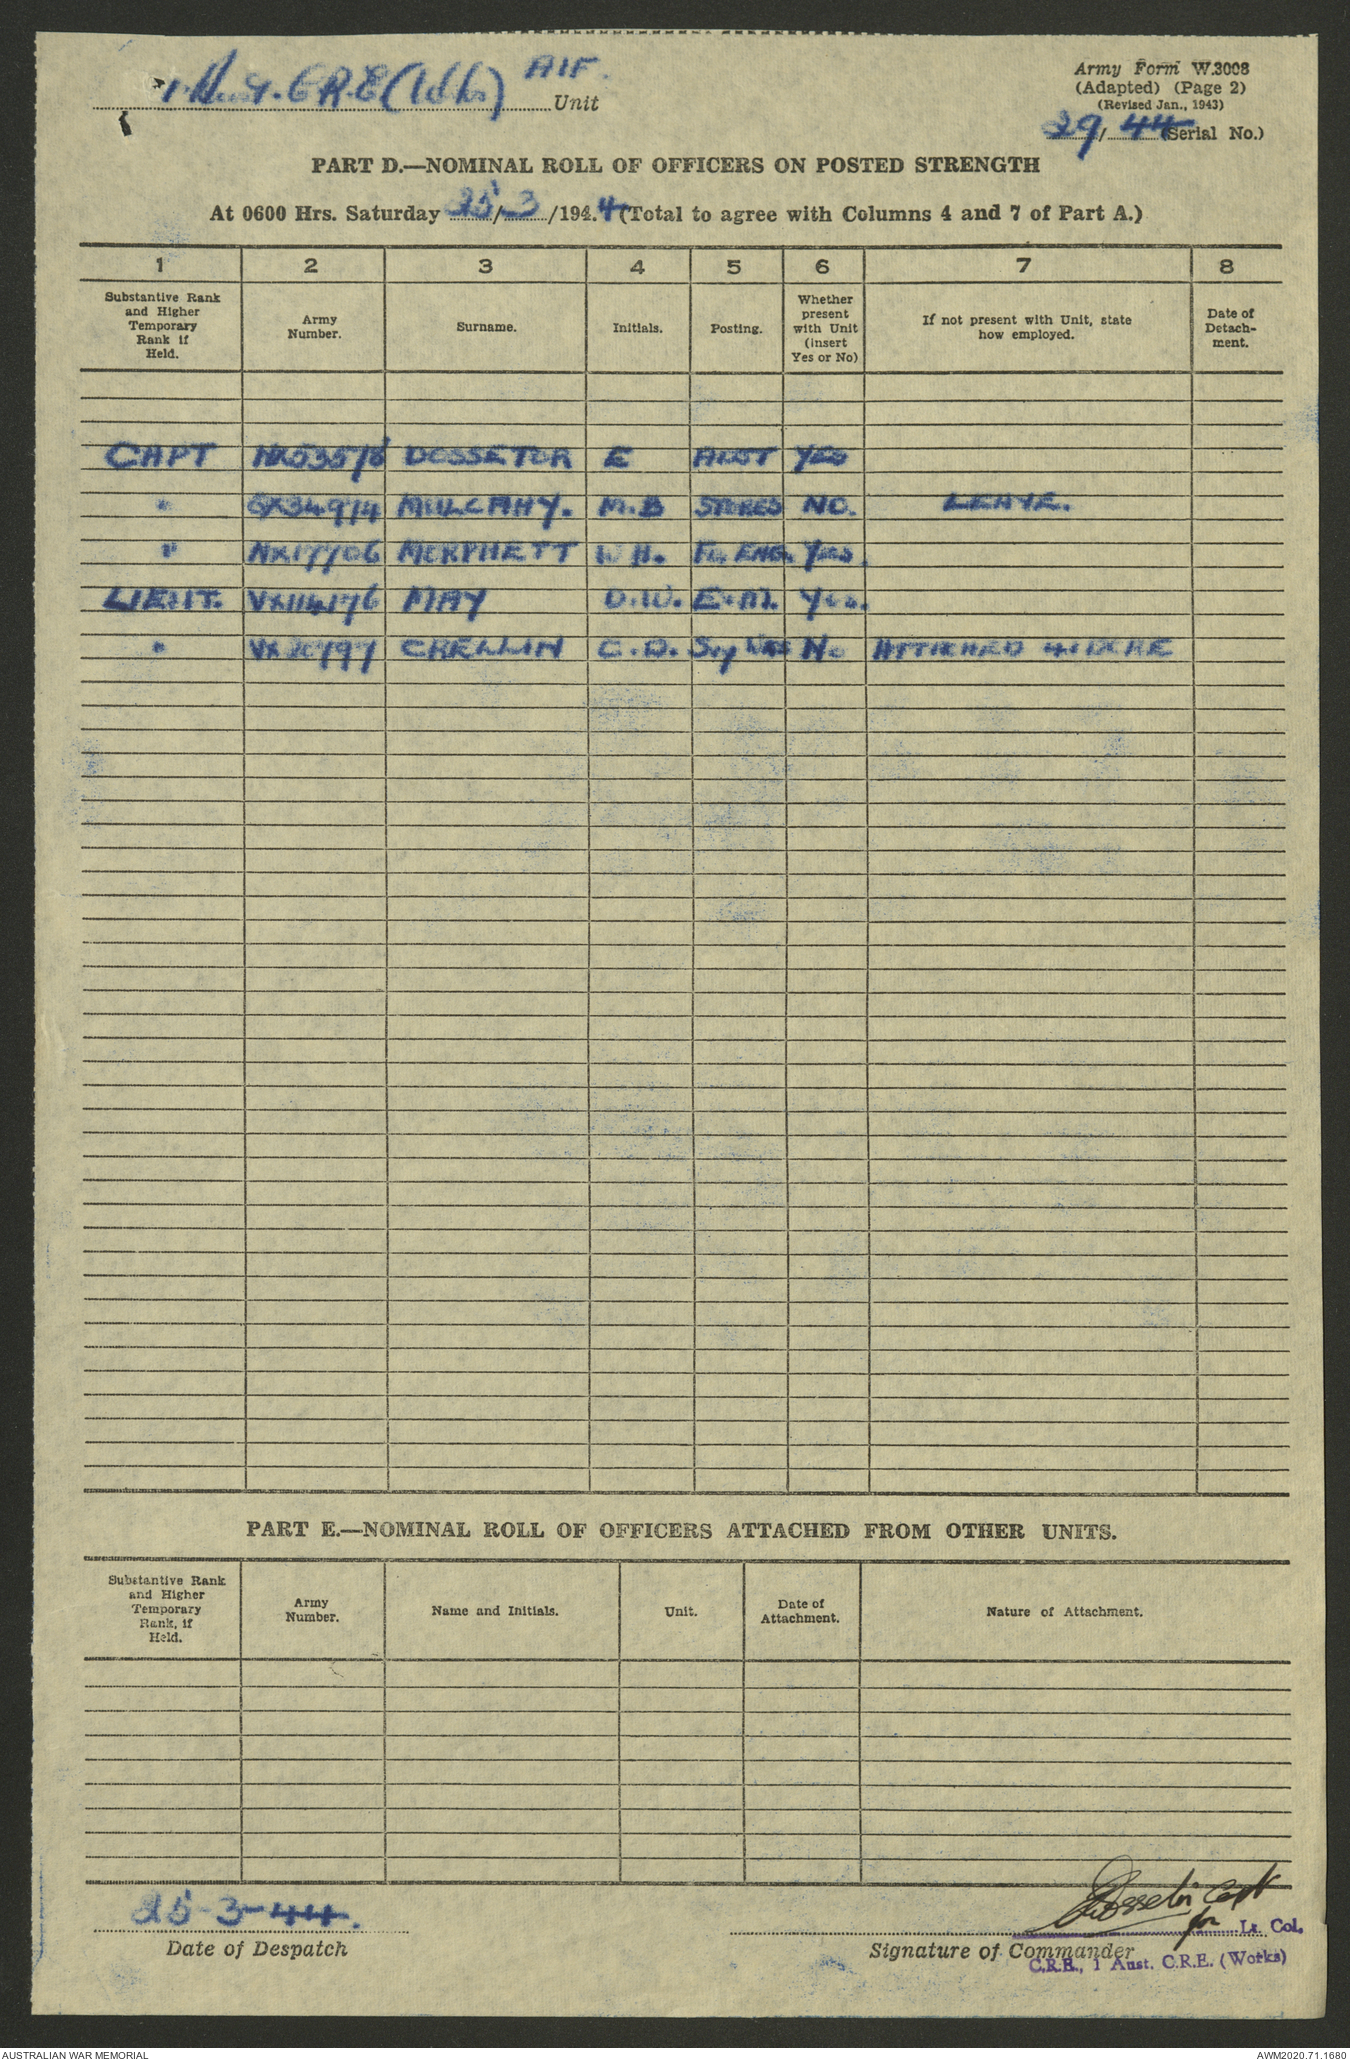 1 Aust. C.R.E (Wks) AIF.
Unit
Army Form W.3008
(Adapted) (Page 2)
(Revised Jan., 1943)
29/44 (Serial No.)
PART D.—NOMINAL ROLL OF OFFICERS ON POSTED STRENGTH
At 0600 Hrs. Saturday 25/3/1944 (Total to agree with Columns 4 and 7 of Part A.)
1 2 3 4 5 6 7 8
Substantive Rank and Higher Temporary Rank if Held.
Army Number.
Surname.
Initials.
Posting.
Whether present with Unit (insert Yes or No)
If not present with Unit, state how employed.
Date of Detach-ment.
CAPT DOSSETOR E ADJT YES
" MULCAHY. M.B STORES NO. LEAVE.
" NX17706 MORPHETT W H. FD. ENG. Yes.
LIEUT. VX114176 MAY D.W. E.M. Yes.
" CRELLIN C.D. No ATTACHED
PART E.—NOMINAL ROLL OF OFFICERS ATTACHED FROM OTHER UNITS.
Substantive Rank and Higher Temporary Rank, if Held.
Army Number.
Name and Initials.
Unit.
Date of Attachment.
Nature of Attachment.
25-3-44.
Date of Despatch
Dossetor Capt
for Lt. Col.
Signature of Commander
C.R.E., 1 Aust. C.R.E. (Works)
AUSTRALIAN WAR MEMORIAL
AWM2020.71.1680